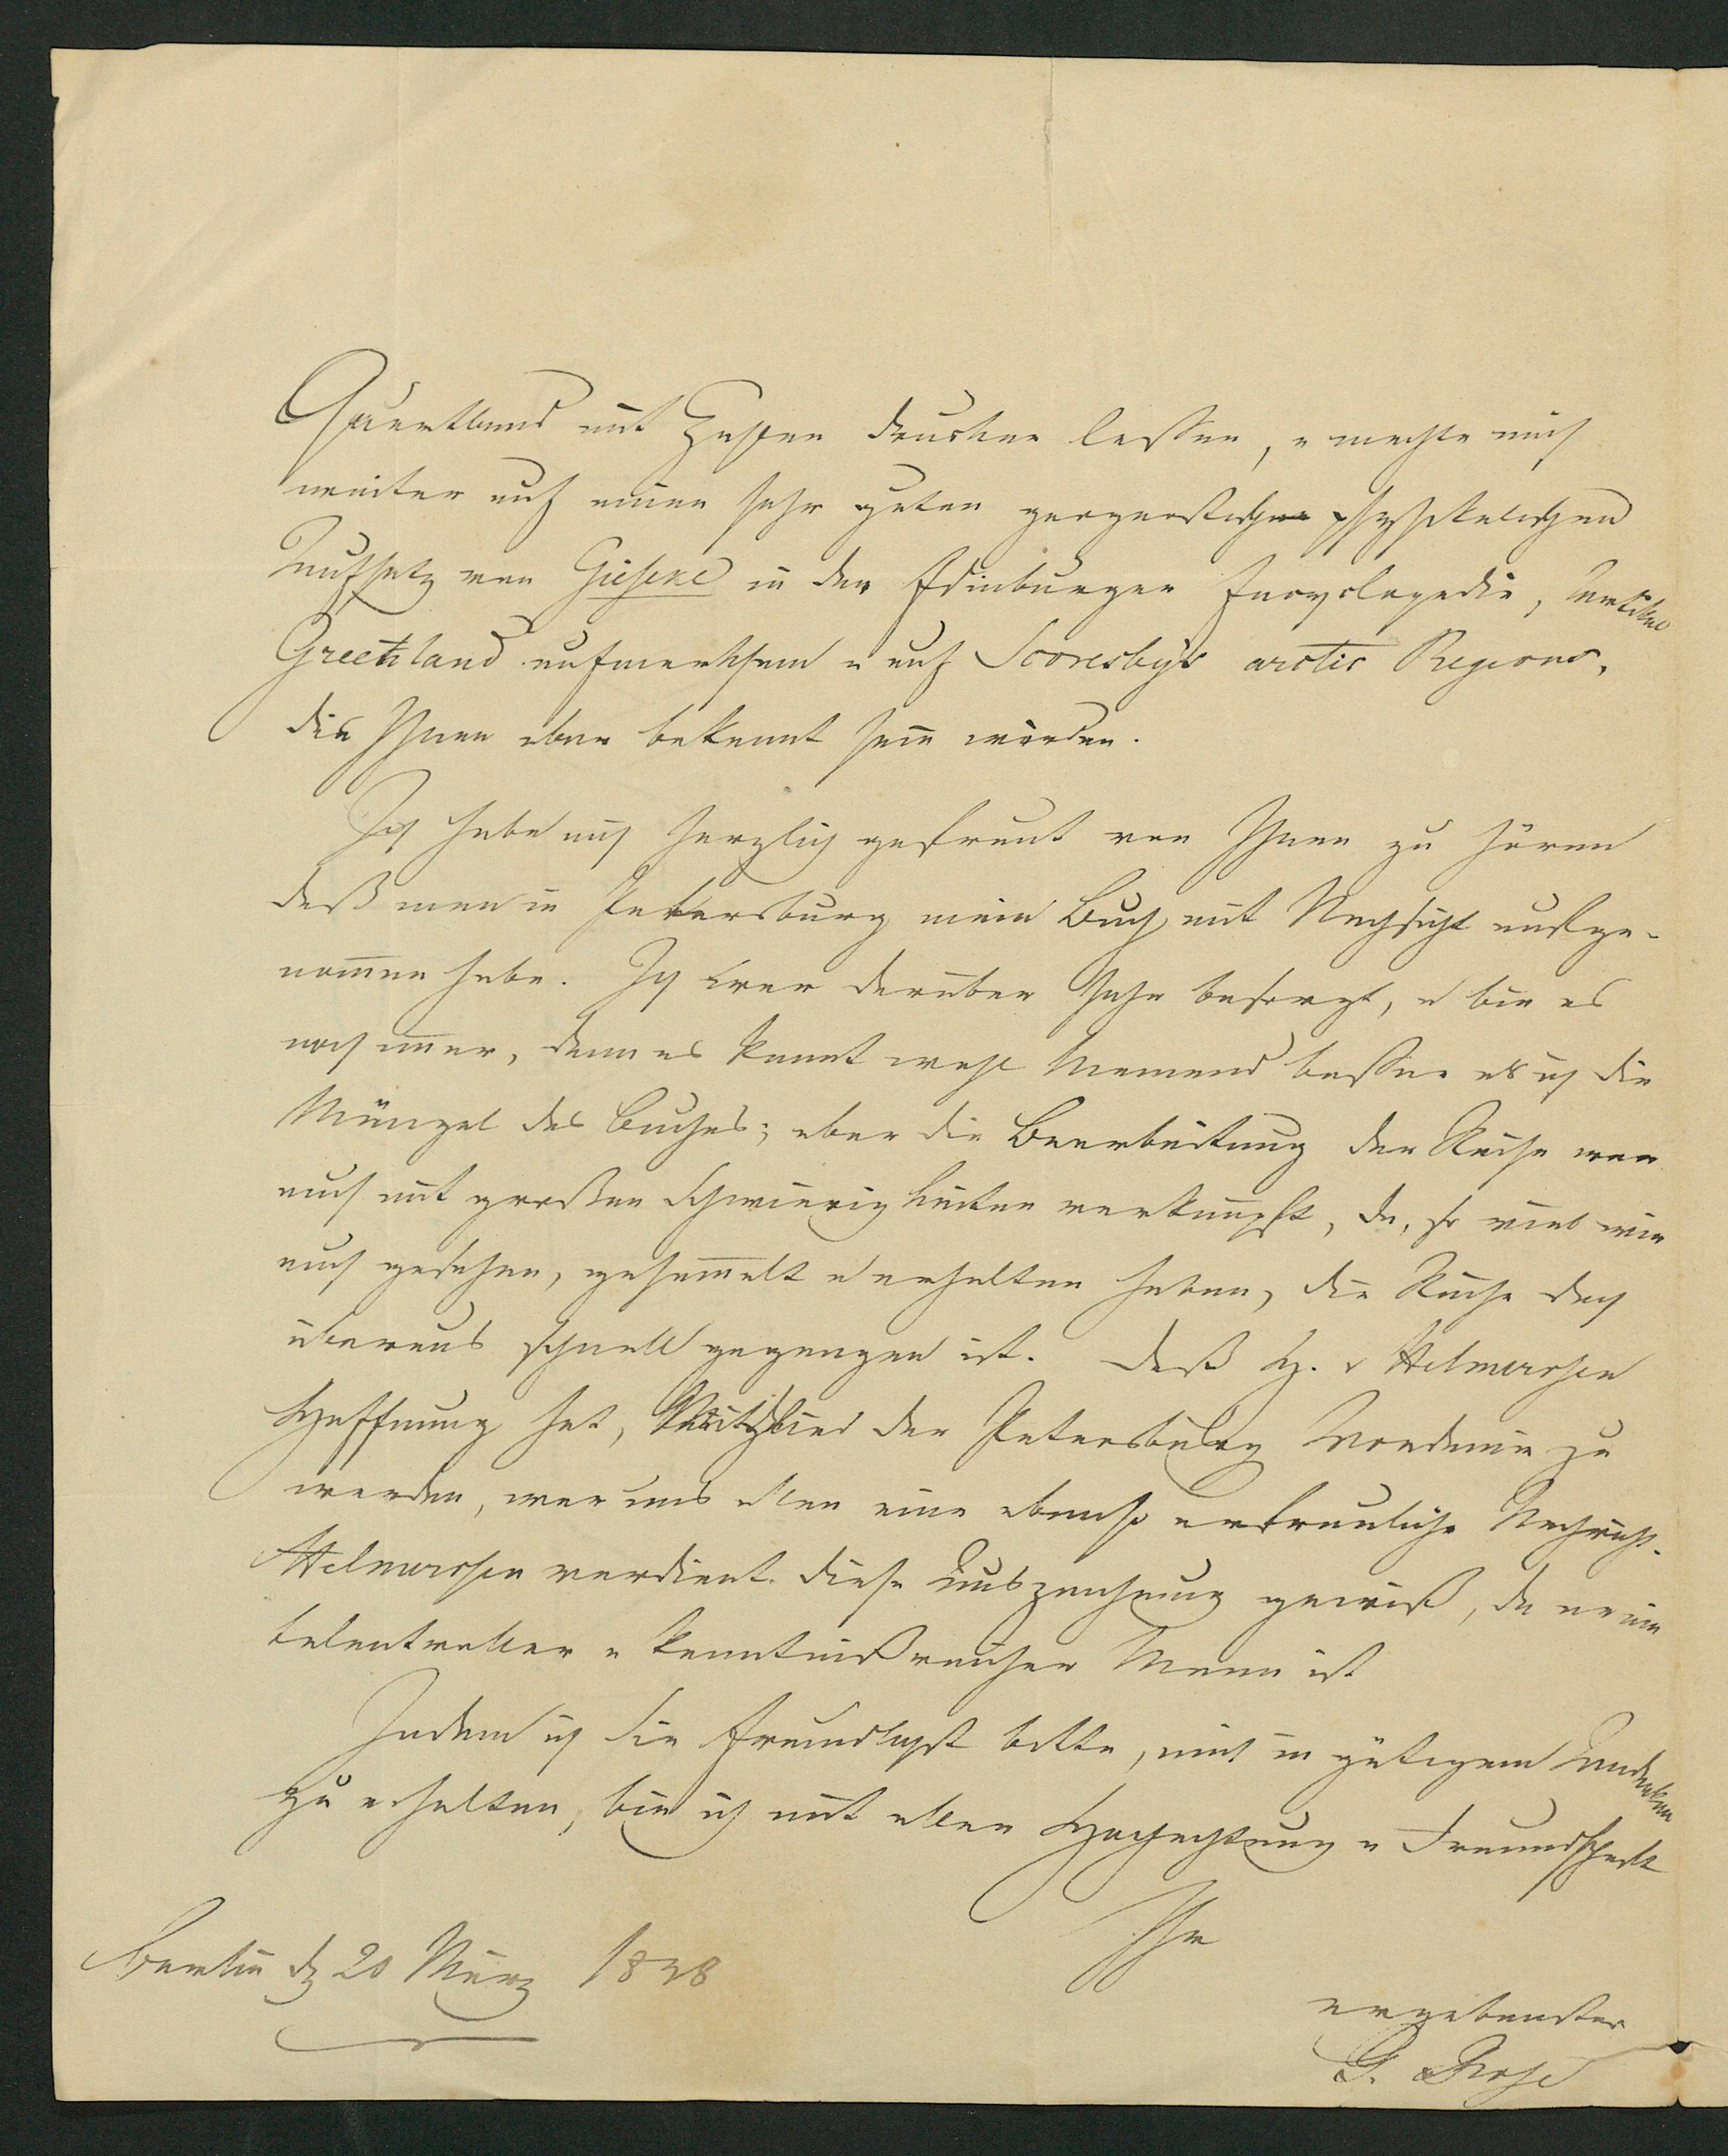 Quartband mit Zusätzen drucken lassen, u machte mich
weiter auf einen sehr guten physikalischen
Aufsatz von Gieseke in der Edinburger Encyclopedie, Artikel
Greenland aufmerksam u auf Scoresby's arctic Regions,
die Ihnen aber bekannt sein werden.
Ich habe mich herzlich gefreut von Ihnen zu hören
daß man in Petersburg mein Buch mit Nachsicht aufge-
nommen habe. Ich war darüber sehr besorgt, u bin es
noch immer, denn es kennt wohl Niemand besser als ich die
Mängel des Buches; aber die Bearbeitung der Reise war
auch mit großen Schwierigkeiten verknüpft, da, so viel wir
auch gesehen, gesammelt u erhalten haben, die Reise doch
überaus schnell gegangen ist. Daß H. v Helmersen
Hoffnung hat, Mitglied der Petersburg Academie zu
werden, war uns allen eine ebenso erfreuliche Nachricht.
Helmersen verdient diese Auszeichnung gewiß, da er ein
talentvoller u kenntnißreicher Mann ist
Indem ich Sie freundlichst bitte, mich in gütigem Andenken
zu erhalten, bin ich mit aller Hochachtung u Freundschaft
Ihr
Berlin d 20 März 1838
ergebenster
G. Rose